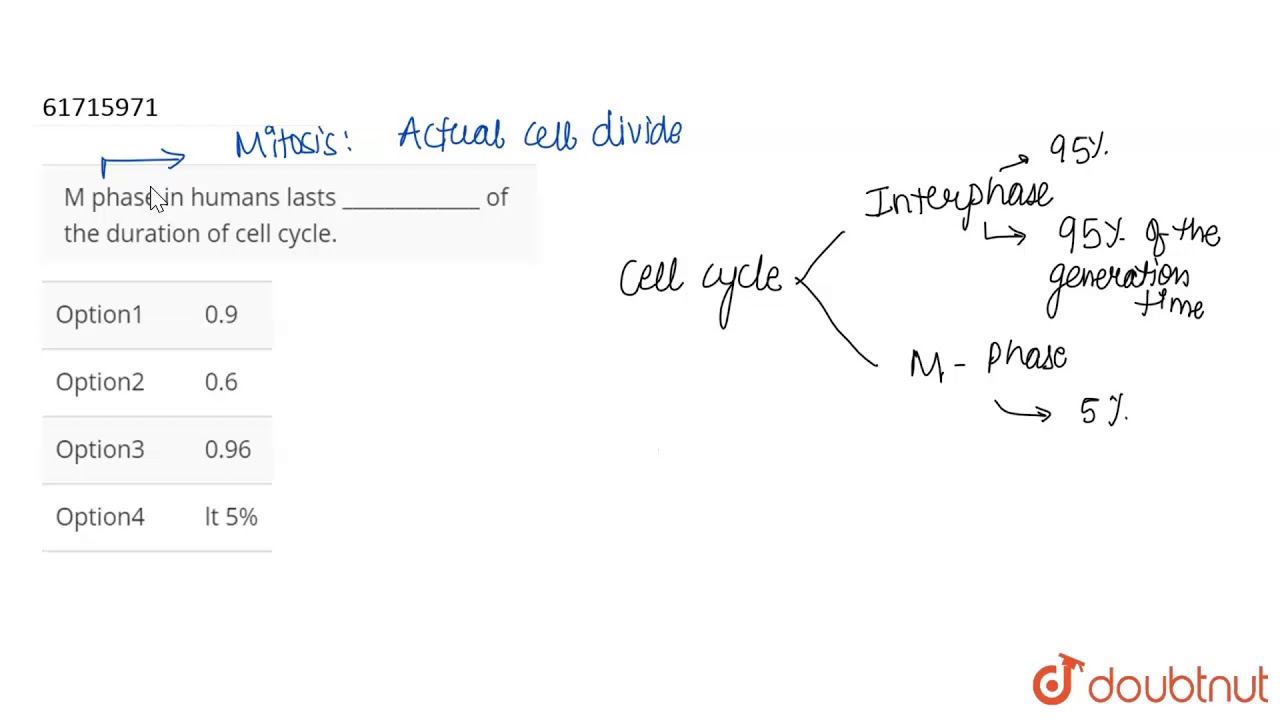 61715971
Mitosis: Actual cell divide
M phase in humans lasts _____________ of
the duration of cell cycle.
Option1 0.9
Option2 0.6
Option3 0.96
Option4 lt 5%
Cell cycle
Interphase
95%
95% of the
generation
time
M - phase
5%
doubtnut